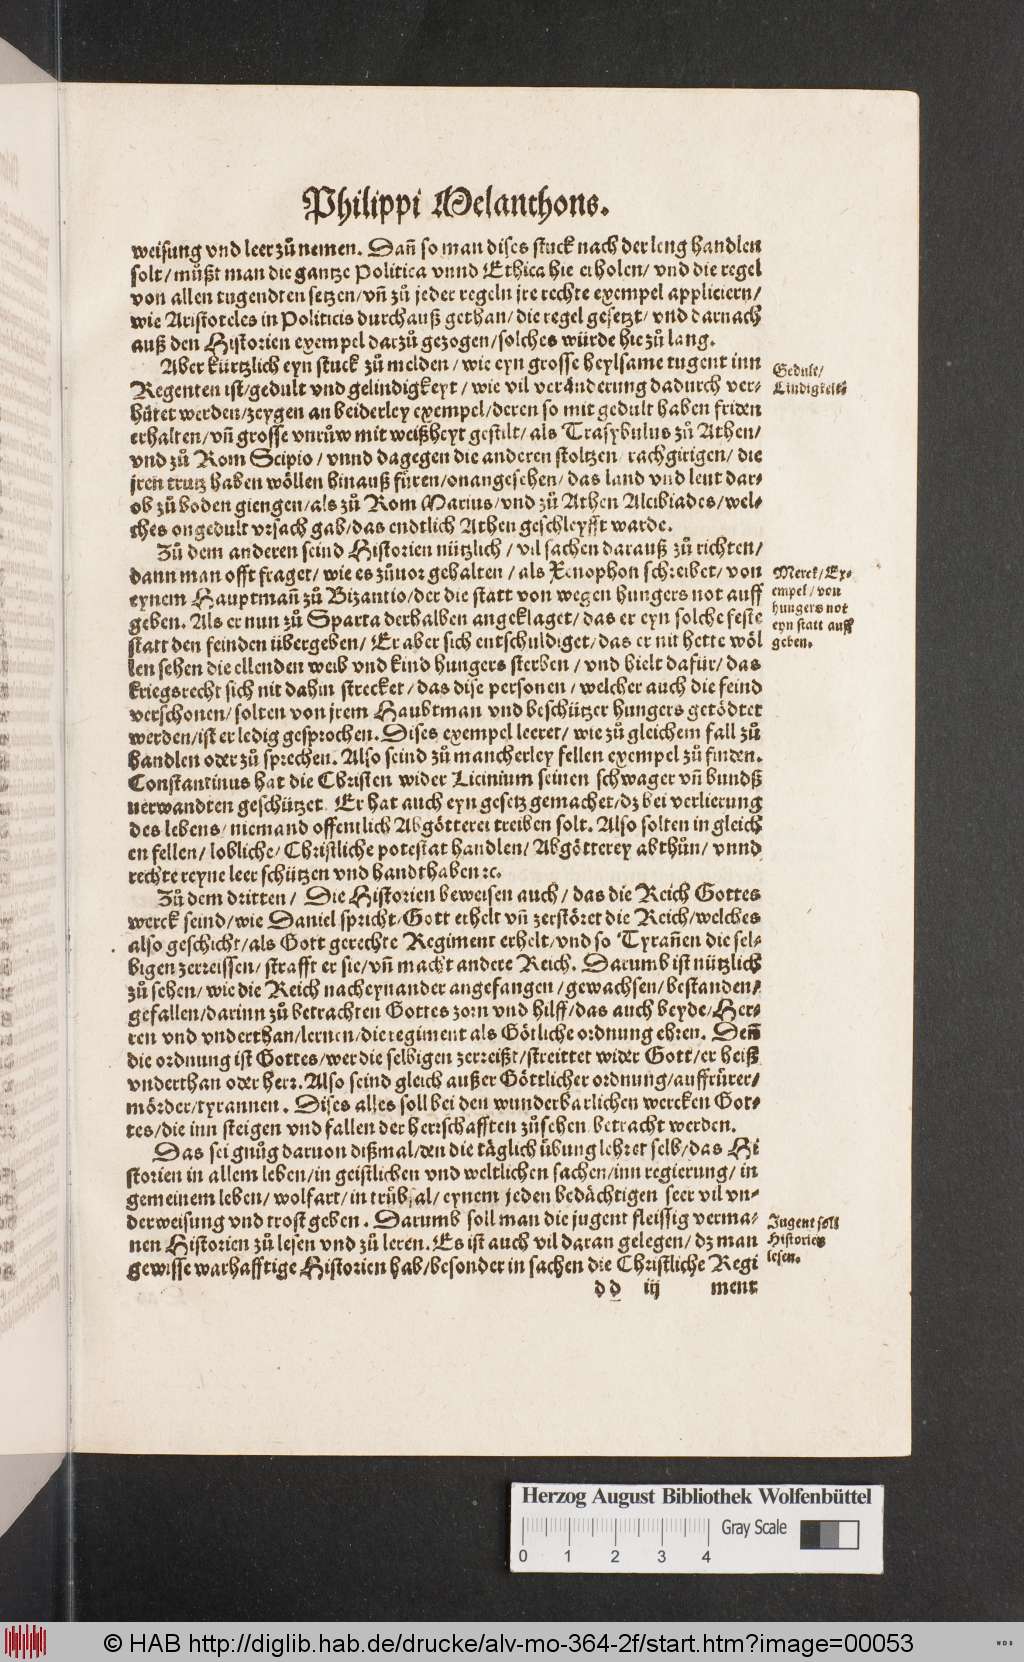 Philippi Melanthons.
weisung vnd leer zů nemen. Dañ so man dises stuck nach der leng handlen
solt/ můßt man die gantze Politica vnnd Ethica hie erholen/ vnd die regel
von allen tugendten setzen/ vñ zů jeder regeln jre rechte exempel appliciern/
wie Aristoteles in Politicis durchauß gethan/ die regel gesetzt/ vnd darnach
auß den Historien exempel darzů gezogen/ solches würde hie zů lang.
Aber kürtzlich eyn stuck zů melden/ wie eyn grosse heylsame tugent inn
Gedult/
Regenten ist/ gedult vnd gelindigkeyt/ wie vil veränderung dadurch ver-
Lindigkeit.
hütet werden/ zeygen an beiderley exempel/ deren so mit gedult haben friden
erhalten/ vñ grosse vnrůw mit weißheyt gestilt/ als Trasybulus zů Athen/
vnd zů Rom Scipio/ vnnd dagegen die anderen stoltzen/ rachgirigen/ die
jren trutz haben wöllen hinauß füren/ onangesehen/ das land vnd leut dar-
ob zů boden giengen/ als zů Rom Marius/ vnd zů Athen Alcibiades/ wel-
ches ongedult vrsach gab/ das endtlich Athen geschleyfft warde.
Zů dem anderen seind Historien nützlich/ vil sachen darauß zů richten/
dann man offt fraget/ wie es zůuor gehalten/ als Xenophon schreibet/ von
Merck/ Ex-
eynem Hauptmañ zů Bizantio/ der die statt von wegen hungers not auff
empel/ von
geben. Als er nun zů Sparta derhalben angeklaget/ das er eyn solche feste
hungers not
eyn statt auff
statt den feinden übergeben/ Er aber sich entschuldiget/ das er nit hette wöl
geben.
len sehen die ellenden weib vnd kind hungers sterben/ vnd hielt dafür/ das
kriegsrecht sich nit dahin strecket/ das dise personen/ welcher auch die feind
verschonen/ solten von jrem Haubtman vnd beschützer hungers getödtet
werden/ ist er ledig gesprochen. Dises exempel leeret/ wie zů gleichem fall zů
handlen oder zů sprechen. Also seind zů mancherley fellen exempel zů finden.
Constantinus hat die Christen wider Licinium seinen schwager vñ bundß
uerwandten geschützet. Er hat auch eyn gesetz gemachet/ dz bei verlierung
des lebens/ niemand offentlich Abgötterei treiben solt. Also solten in gleich
en fellen/ lobliche/ Christliche potestat handlen/ Abgötterey abthůn/ vnnd
rechte reyne leer schützen vnd handthaben ꝛc.
Zů dem dritten/ Die Historien beweisen auch/ das die Reich Gottes
werck seind/ wie Daniel spricht/ Gott erhelt vñ zerstöret die Reich/ welches
also geschicht/ als Gott gerechte Regiment erhelt/ vnd so Tyrañen die sel-
bigen zerreissen/ strafft er sie/ vñ macht andere Reich. Darumb ist nützlich
zů sehen/ wie die Reich nacheynander angefangen/ gewachsen/ bestanden/
gefallen/ darinn zů betrachten Gottes zorn vnd hilff/ das auch beyde/ Her-
ren vnd vnderthan/ lernen/ die regiment als Götliche ordnung ehren. Deñ
die ordnung ist Gottes/ wer die selbigen zerreißt/ streittet wider Gott/ er heiß
vnderthan oder herr. Also seind gleich außer Göttlicher ordnung/ auffrürer/
mörder/ tyrannen. Dises alles soll bei den wunderbarlichen wercken Got-
tes/ die inn steigen vnd fallen der herrschafften zůsehen/ betracht werden.
Das sei gnůg daruon dißmal/ den die täglich übung lehret selb/ das Hi
storien in allem leben/ in geistlichen vnd weltlichen sachen/ inn regierung/ in
gemeinem leben/ wolfart/ in trübsal/ eynem jeden bedächtigen seer vil vn-
derweisung vnd trost geben. Darumb soll man die jugent fleissig verma-
Jugent soll
nen Historien zů lesen vnd zů leren. Es ist auch vil daran gelegen/ dz man
Historien
lesen.
gewisse warhafftige Historien hab/ besonder in sachen die Christliche Regi
dd iij ment
Herzog August Bibliothek Wolfenbüttel
Gray Scale
0 1 2 3 4
© HAB http://diglib.hab.de/drucke/alv-mo-364-2f/start.htm?image=00053